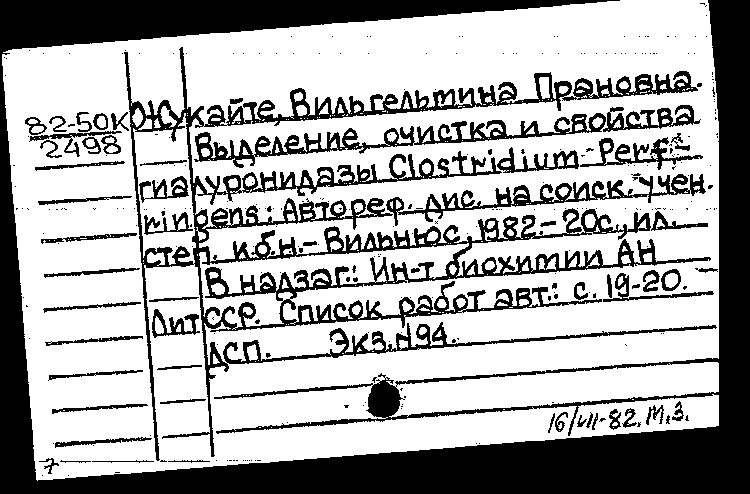 82-50К Южукайте, Вильгельмина Прановна.
2498 Выделение, очистка и свойства
гиалуронидазы Clostridium Perf-
ringens: Автореф. дис. на соиск. учен.
степ. к.б.н.- Вильнюс, 1982.- 20с., ил.
В надзаг.: Ин-т биохимии АН
ЛитССР. Список работ авт.: с. 19-20.
ДСП. Экз. N94.
16/VII-82. М.З.
7